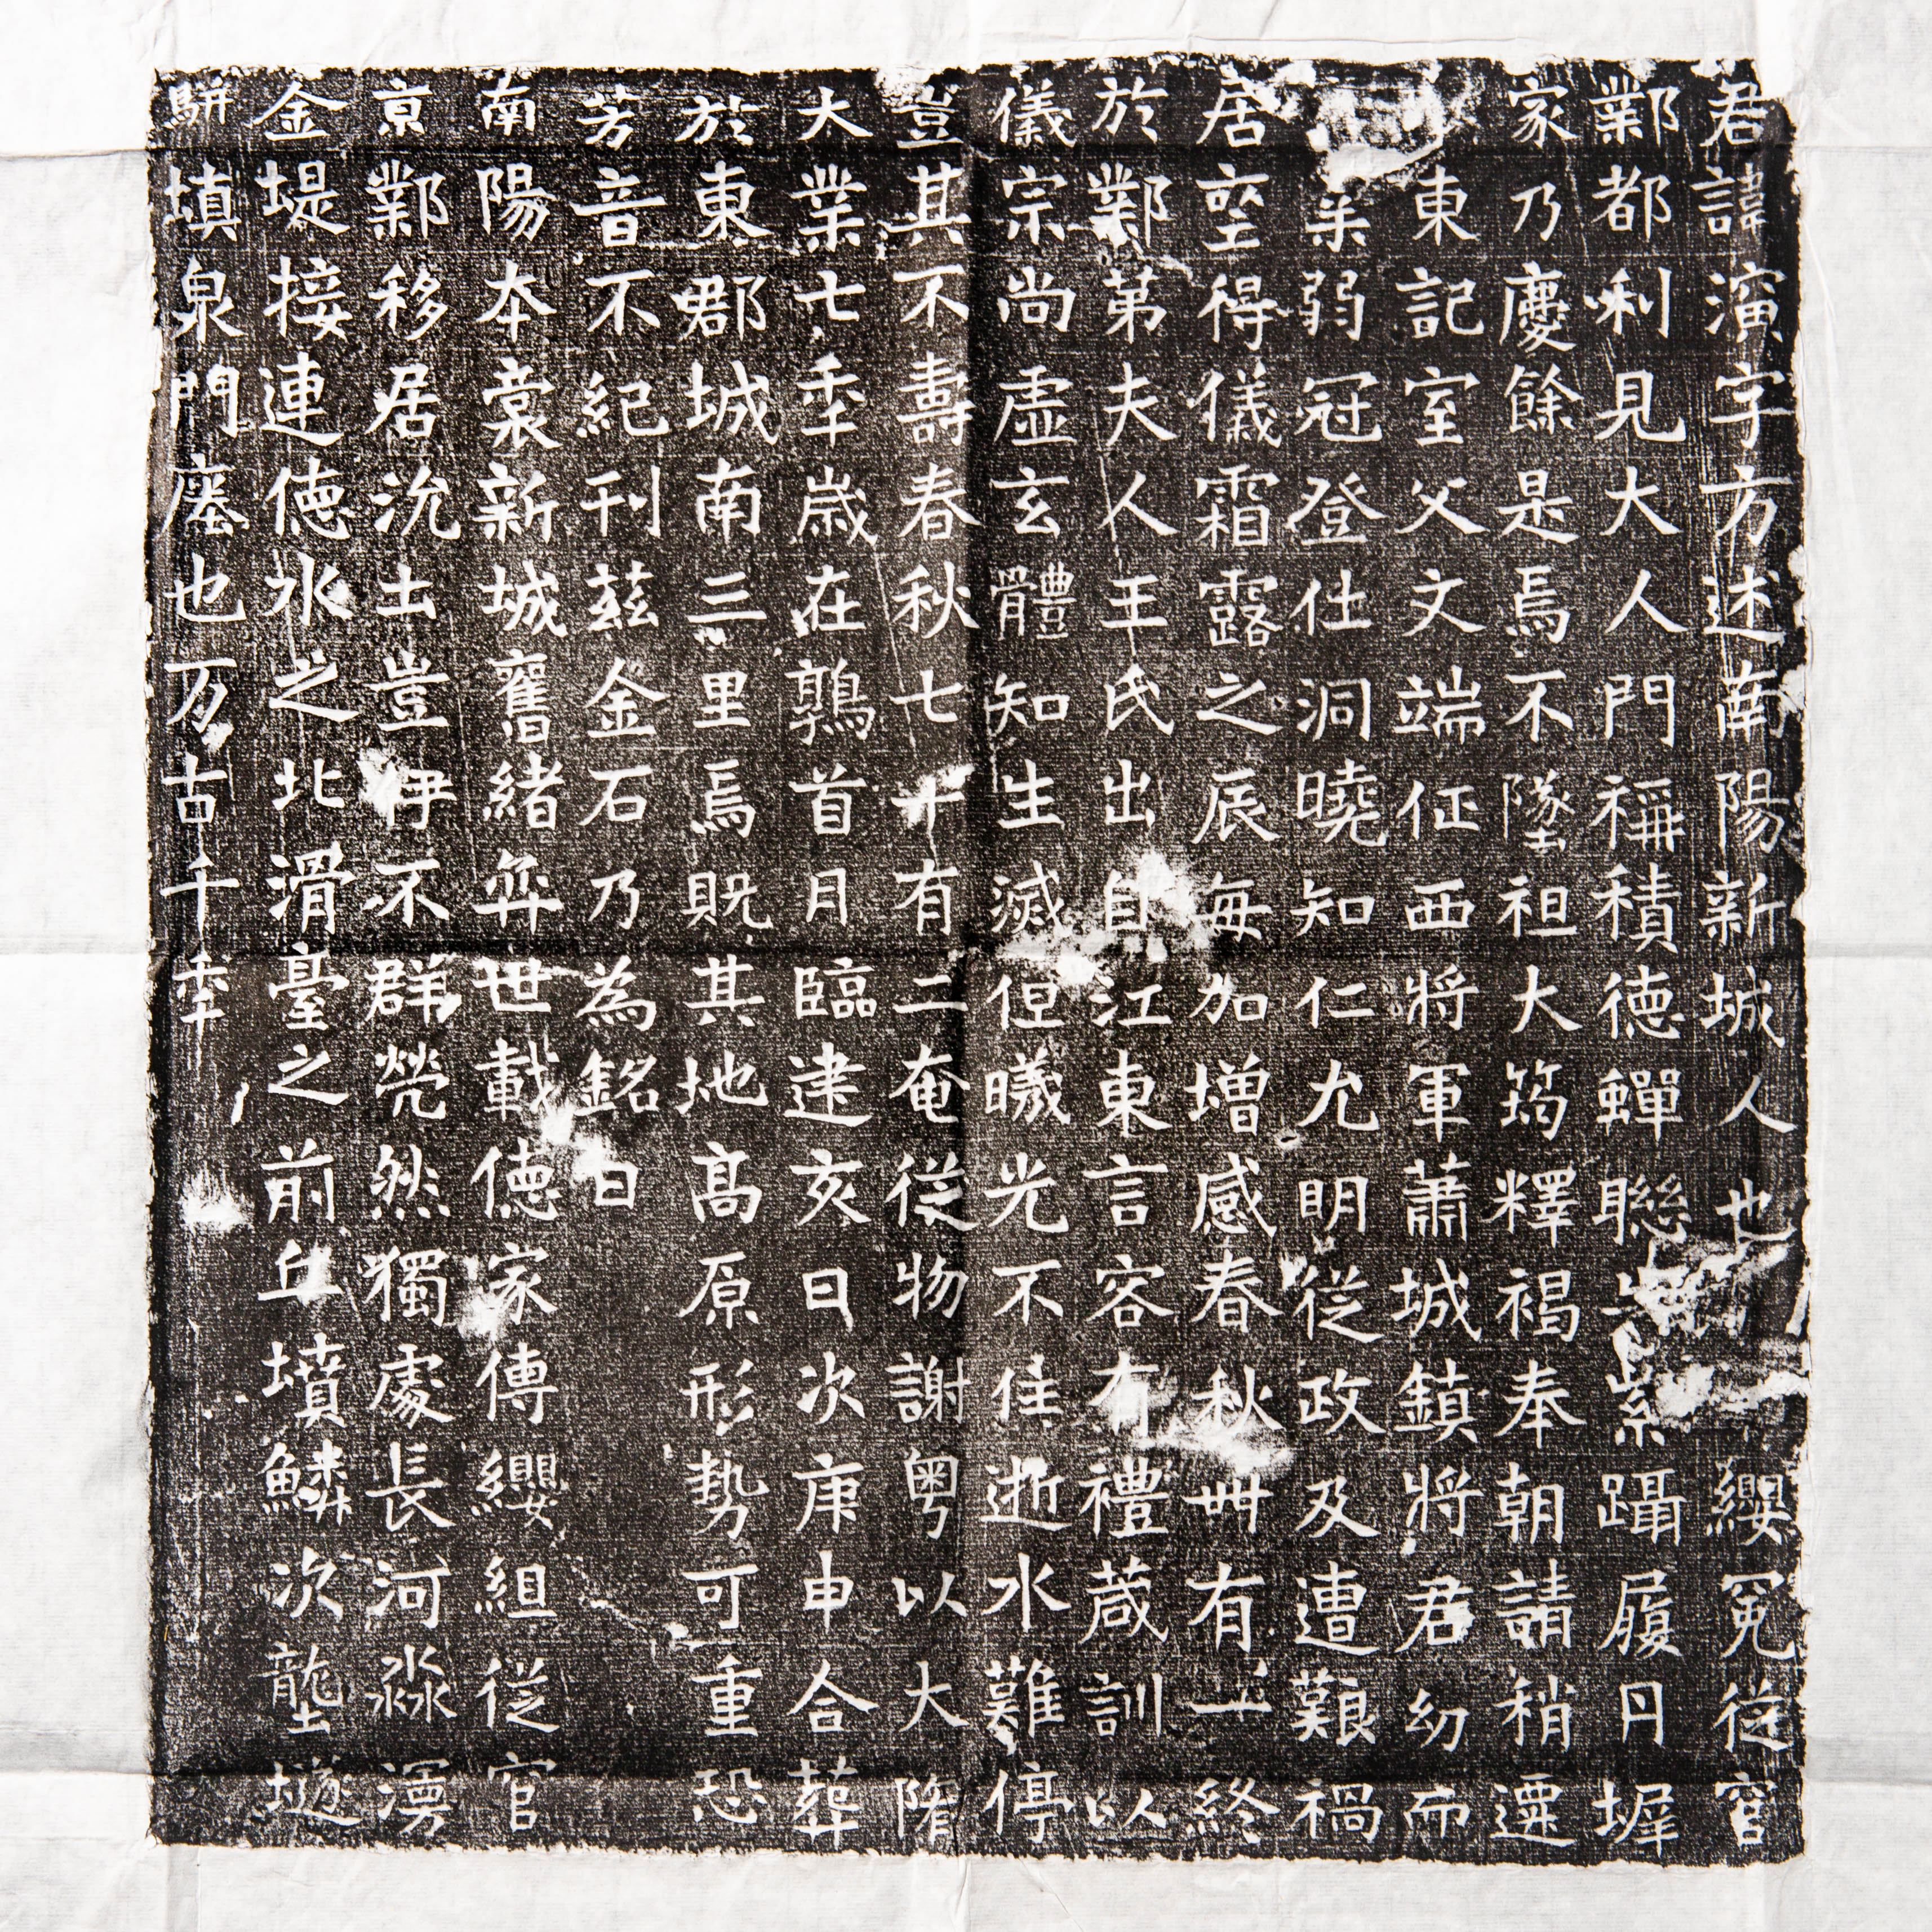 君諱演字方述南陽新城人也纓冕從官
鄴都利見大人門稱積德蟬聯紫躡履丹墀
家乃慶餘是焉不墜祖大筠釋褐奉朝請稍遷
東記室父文端征西將軍蕭城鎮將君幼而
弱冠登仕洞曉知仁尤明從政及遭艱禍
居𡊮得儀霜露之辰每加增感春秋卌有一終
於鄴第夫人王氏出自江東言容有禮葴訓以
儀宗尚虛玄體知生滅但曦光不住逝水難停
豈其不壽春秋七十有二奄從物謝粵以大隋
大業七年歲在鶉首月臨建亥日次庚申合葬
於東郡城南三里焉既其地高原形勢可重恐
芳音不紀刊茲金石乃為銘曰
南陽本襄新城舊緒弈世載德家傳纓組從官
京鄴移居沇土豈伊不群煢然獨處長河淼漫
金堤接連德水之北滑臺之前丘墳鱗次壟𡑞
駢填泉門塵也万古千年